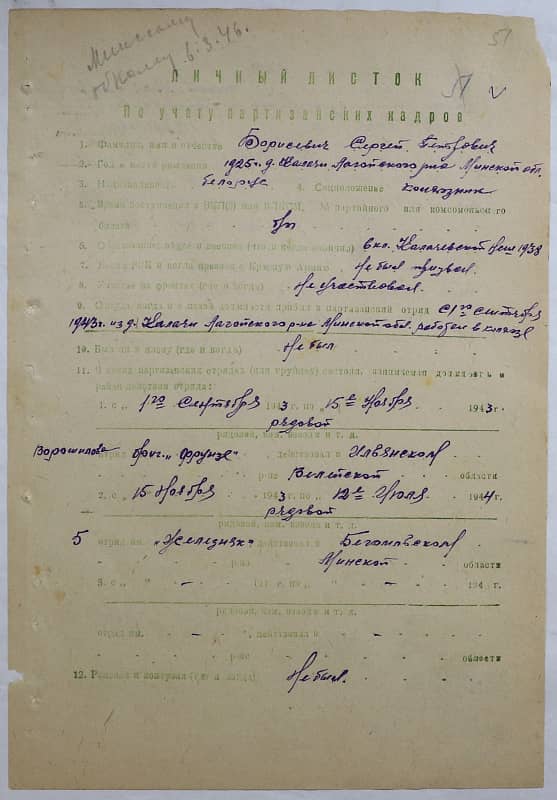 Минскому
обкому 6.3.46.
51
ЛИЧНЫЙ ЛИСТОК
По учету партизанских кадров
1. Фамилия, имя и отчество Борисевич Сергей Петрович
2. Год и место рождения 1925 г. д. Калачи Логойского р-на Минской обл.
3. Национальность белорус 4. Соцположение колхозник
5. Время поступления в ВКП(б) или ВЛКСМ, № партийного или комсомольского
билета б/п
6. Образование, общее и военное (что и когда окончил) 6 кл. Калачевской нсш 1938
7. Каким РВК и когда призван в Красную Армию Не был призван.
8. Участие на фронтах (где и когда) Не участвовал.
9. Откуда, когда и с какой должности прибыл в партизанский отряд С 1го Сентября
1943 г. из д. Калачи Логойского р-на Минской обл. работал в колхозе
10. Был ли в плену (где и когда) Не был
11. В каких партизанских отрядах (или группах) состоял, занимаемая должность и
район действия отряда:
1. с „ 1го Сентября 1943 г. по „ 15е Ноября 1943 г.
рядовой
рядовой, ком. взвода и т. д.
Ворошилова отряд бриг. „Фрунзе“, действовал в Ильянском
р-не Вилейской области
2. с „ 15 Ноября 1943 г. по „ 12е Июля 1944 г.
рядовой
рядовой, ком. взвода и т. д.
5 отряд им. „Железняк“ действовал в Бегомльском
р-не Минской области
3. с „ - 194 г. по „ - 194 г.
рядовой, ком. взвода и т. д.
отряд им. - “, действовал в
р-не области
12. Ранения и контузии (где и когда) Не был.